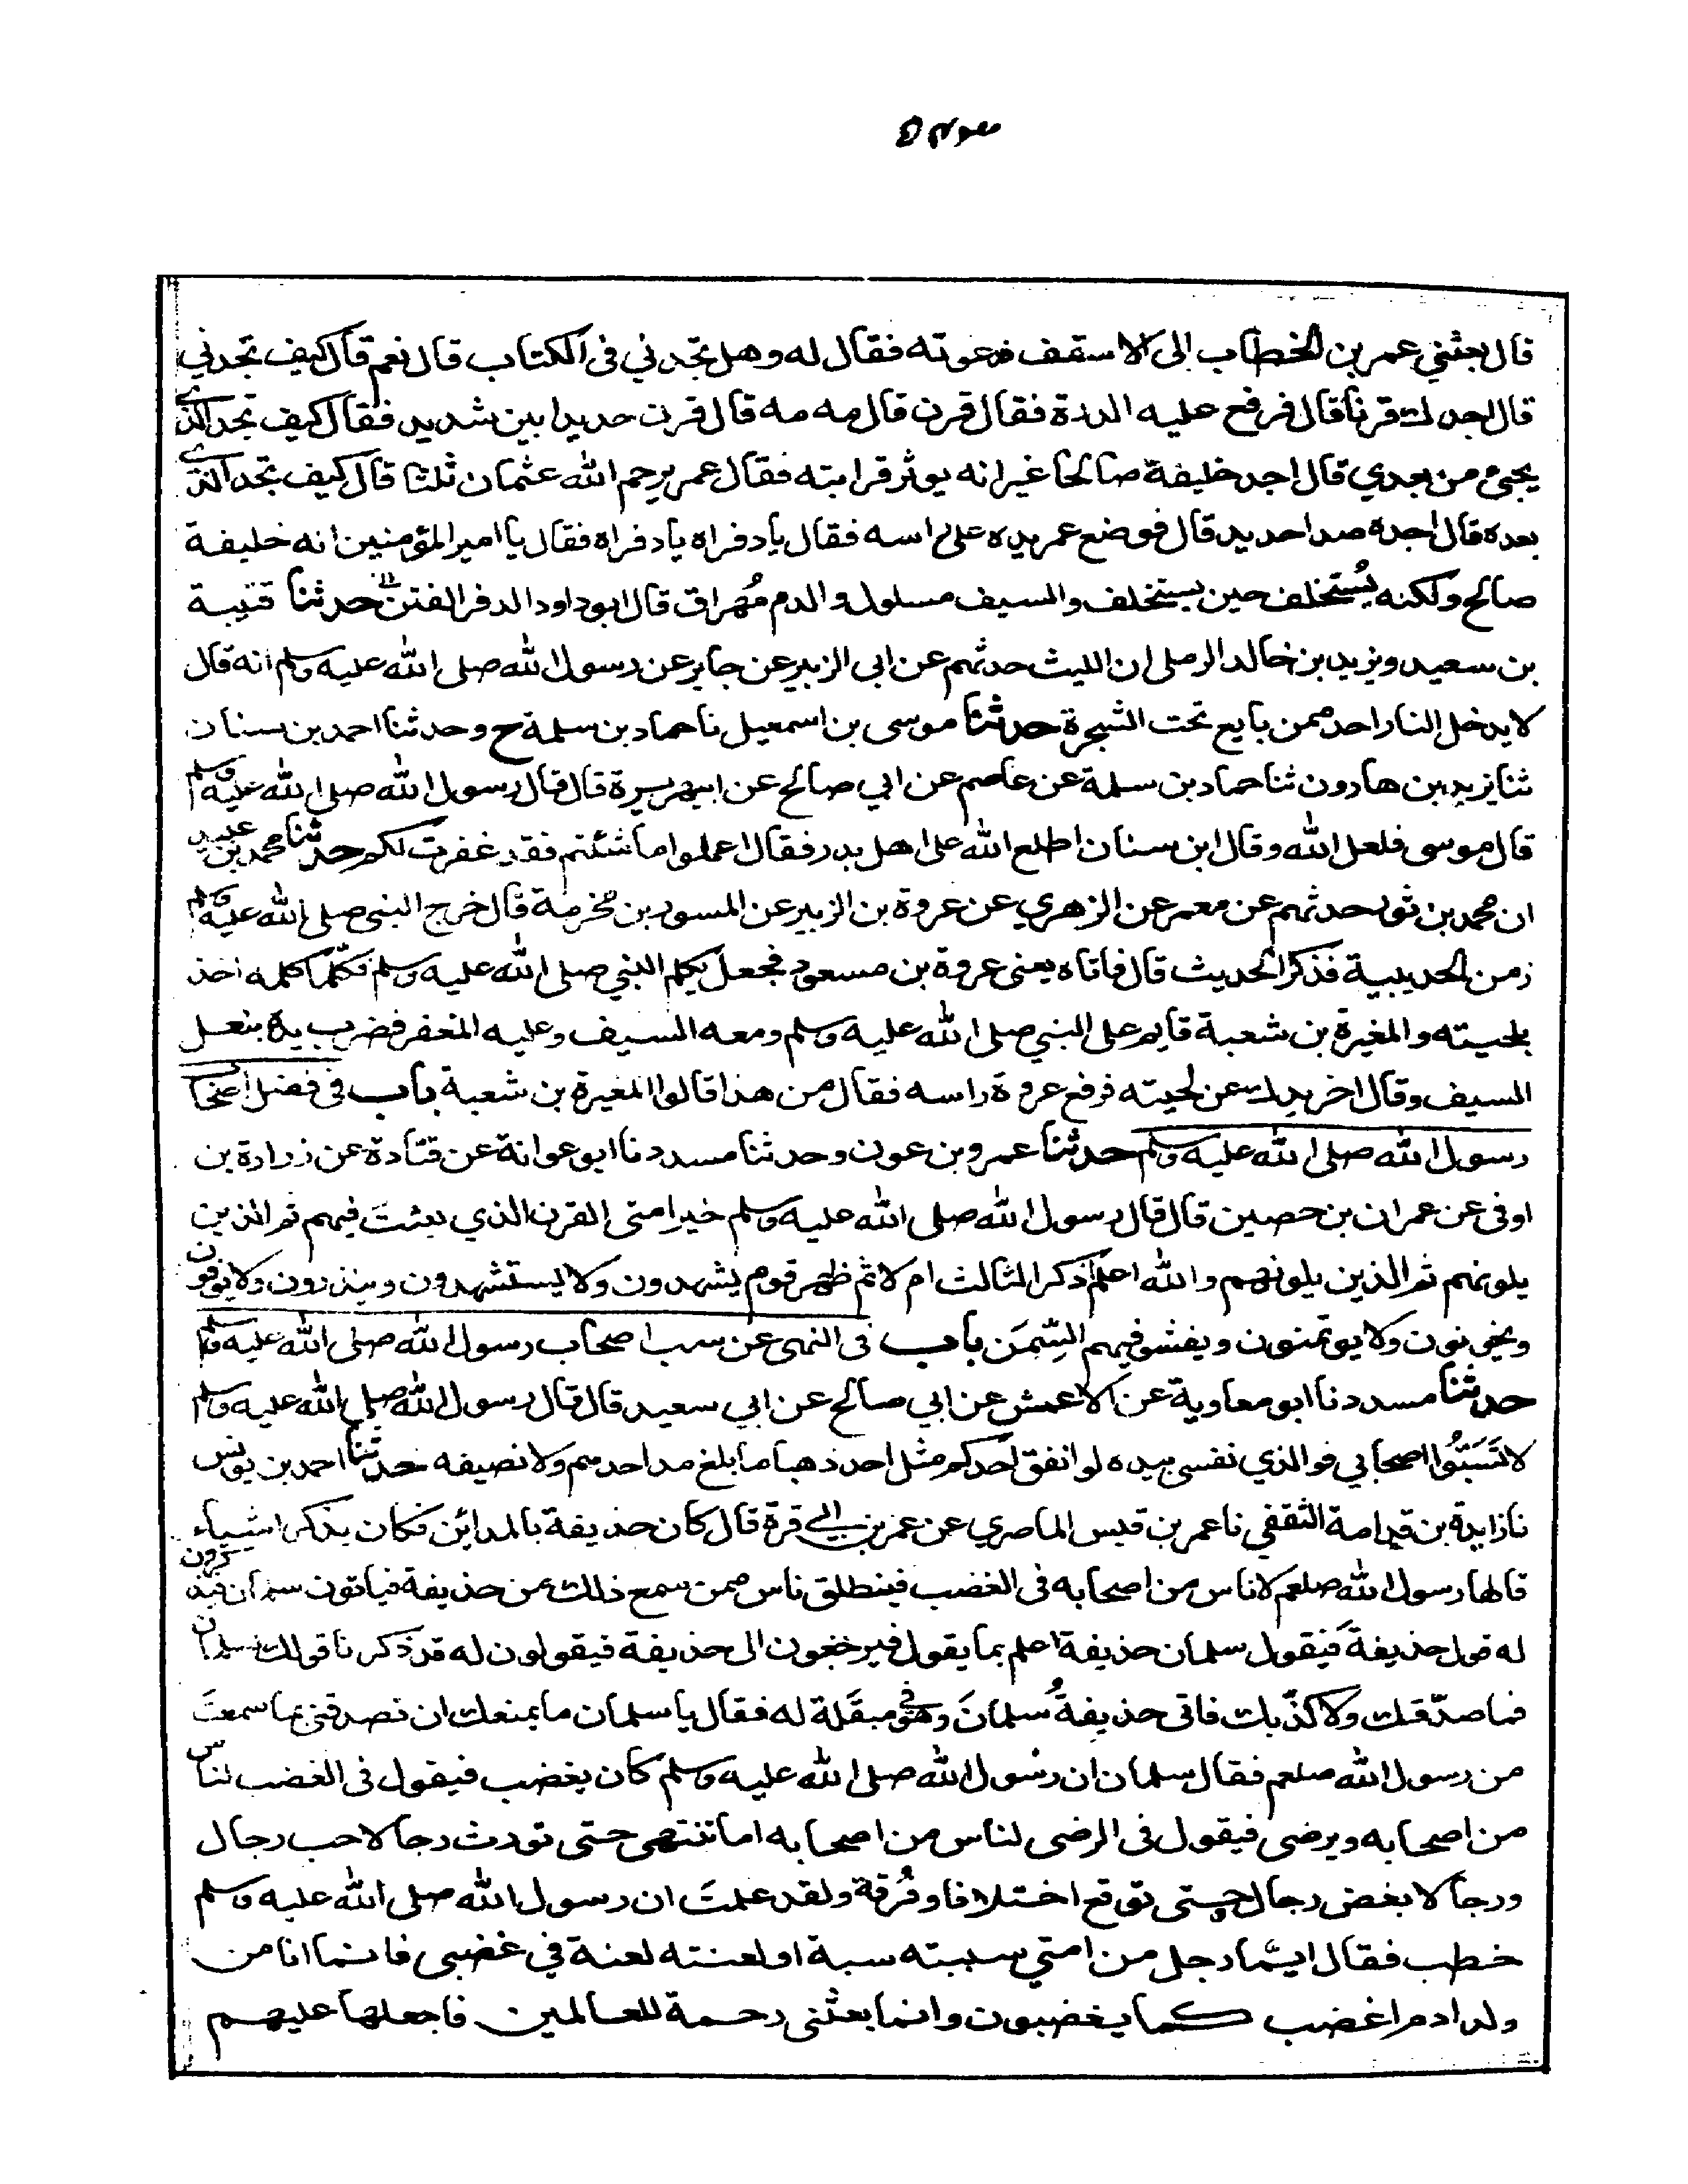 قال بعثني عمر بن الخطاب الى الاسقف فدعوته فقال له وهل تجدني في الكتاب قال نعم قال كيف تجدني
قال اجدك قرنا قال فرفع عليه الدرة فقال قرن قال مه مه قال قرن حديد ابين شديد فقال كيف تجد الذي
يجئ من بعدي قال اجد خليفة صالحا غير انه يوثر قرابته فقال عمر يرحم الله عثمان ثلثا قال كيف تجد الذي
بعده قال اجدة صدا حديد قال فوضع عمر يده على راسه فقال يا دفراه يا دفراه فقال يا امير المؤمنين انه خليفة
صالح ولكنه يُستخلف حين يستخلف والسيف مسلول والدم مُهراق قال ابو داود الدفر الفتن حدثنا قتيبة
بن سعيد ويزيد بن خالد الرملى ان الليث حدثهم عن ابى الزبير عن جابر عن رسول الله صلى الله عليه وسلم انه قال
لا يدخل النار احد ممن بايع تحت الشجرة حدثنا موسى بن اسمعيل نا حماد بن سلمة ح وحدثنا احمد بن سنان
ثنا يزيد بن هارون ثنا حماد بن سلمة عن عاصم عن ابي صالح عن ابى هريرة قال قال رسول الله صلى الله عليه وسلم
قال موسى فلعل الله وقال ابن سنان اطلع الله على اهل بدر فقال اعملوا ما شئتم فقد غفرت لكم حدثنا محمد بن عبيد
ان محمد بن ثور حدثهم عن معمر عن الزهري عن عروة بن الزبير عن المسور بن مخرمة قال خرج النبى صلى الله عليه وسلم
زمن الحديبية فذكر الحديث قال فاتاه يعنى عروة بن مسعود فجعل يكلم النبي صلى الله عليه وسلم فكلّما كلمه اخذ
بلحيته والمغيرة بن شعبة قايم على النبي صلى الله عليه وسلم ومعه السيف وعليه المغفر فضرب يده بنعل
السيف وقال اخر يدك عن لحيته فرفع عروة راسه فقال من هذا قالوا المغيرة بن شعبة باب في فضل اصحاب
رسول الله صلى الله عليه وسلم حدثنا عمرو بن عون وحدثنا مسدد نا ابو عوانة عن قتادة عن زرارة بن
اوفى عن عمران بن حصين قال قال رسول الله صلى الله عليه وسلم خير امتى القرن الذي بعثتَ فيهم ثم الذين
يلونهم ثم الذين يلونهم والله اعلم اذكر الثالث ام لا ثم ظهر قوم يشهدون ولا يستشهدون وينذرون ولا يوفون
ويخونون ولا يوتمنون ويفشو فيهم السِّمَن باب فى النهى عن سب اصحاب رسول الله صلى الله عليه وسلم
حدثنا مسدد نا ابو معاوية عن الاعمش عن ابي صالح عن ابي سعيد قال قال رسول الله صلى الله عليه وسلم
لا تَسَبُّوا اصحابي فوالذي نفسى بيده لو انفق احدكم مثل احد ذهبا ما بلغ مد احدهم ولا نصيفه حدثنا احمد بن يونس
نا زايدة بن قدامة الثقفي نا عمر بن قيس الماصري عن عمر بن ابي قرة قال كان حذيفة بالمدائن فكان يذكر اشياء
قالها رسول الله صلعم لاناس من اصحابه فى الغضب فينطلق ناس ممن سمع ذلك من حذيفة فياتون سلمان فيذكرون
له قول حذيفة فيقول سلمان حذيفة اعلم بما يقول فيرجعون الى حذيفة فيقولون له قد ذكرنا قولك لسلمان
فما صدّقك ولا كذّبك فاتى حذيفةُ سلمانَ وهو في مبقَلة له فقال يا سلمان ما يمنعك ان تصدقنى بما سمعتَ
من رسول الله صلعم فقال سلمان ان رسول الله صلى الله عليه وسلم كان يغضب فيقول فى الغضب لناس
من اصحابه ويرضى فيقول فى الرضى لناس من اصحابه اما تنتهى حتى تورث رجالا حب رجال
ورجالا بغض رجال حتى توقع اختلافا وفُرقة ولقد علمتَ ان رسول الله صلى الله عليه وسلم
خطب فقال ايّما رجل من امتي سببته سبة او لعنته لعنة في غضبى فانما انا من
ولد ادم اغضب كما يغضبون وانما بعثنى رحمة للعالمين فاجعلها عليهم